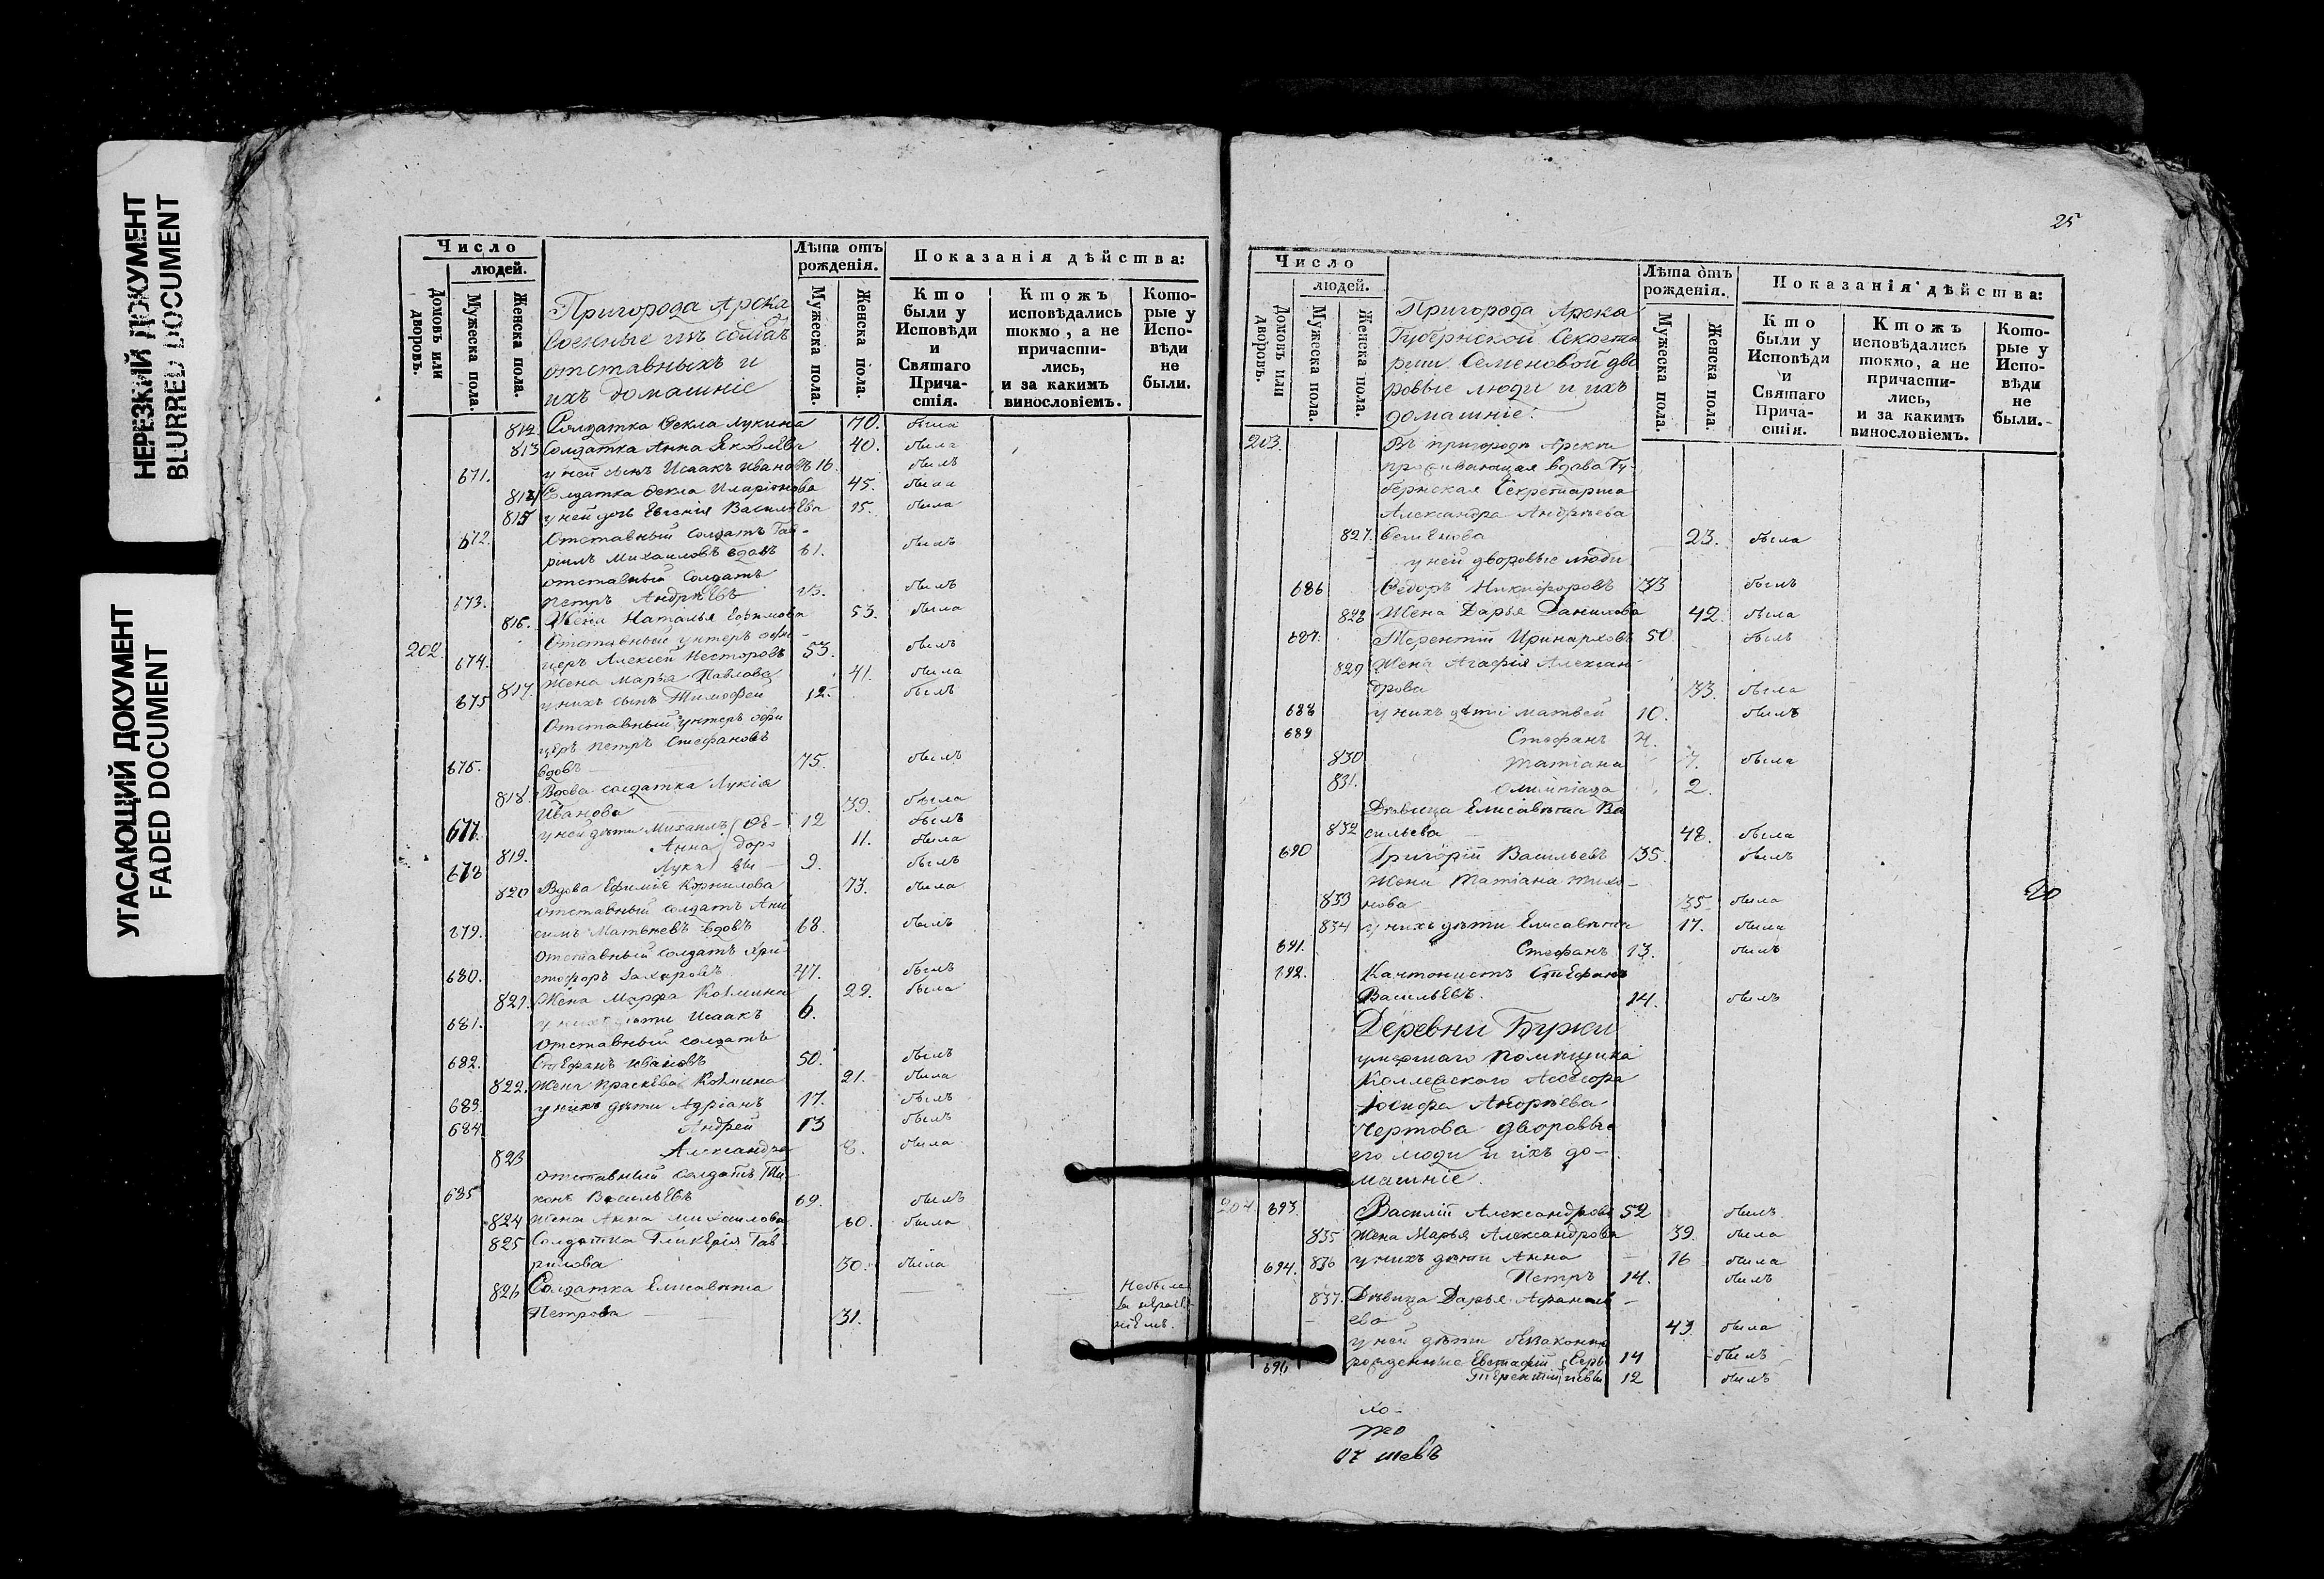 НЕРЕЗКИЙ ДОКУМЕНТ
BLURRED DOCUMENT
УГАСАЮЩИЙ ДОКУМЕНТ
FADED DOCUMENT
Число
людей.
Домовъ или дворовъ.
Мужеска пола.
Женска пола.
Пригорода Арска
военные изъ солдатъ
отставныхъ и
ихъ домашніе
Лѣта отъ рожденія.
Мужеска пола.
Женска пола.
Показанія дѣйства:
Кто были у Исповѣди и Святаго Причастія.
Ктожъ исповѣдались токмо, а не причастились, и за какимъ винословіемъ.
Которые у Исповѣди не были.
812. Солдатка Фекла Лукина 70. была
813 Солдатка Анна Яковлева 40. была
671. у ней сынъ Исаакъ Ивановъ 16. былъ
814 Солдатка Фекла Иларіонова 45. была
815 у ней дочь Евгенія Васильева 15. была
672. Отставный солдатъ Гав-
ріилъ Михаиловъ вдовъ 61. былъ
отставный солдатъ
673. Петръ Андрѣевъ былъ
816. Жена Наталья Ефимова 53. была
Отставный унтеръ офи-
202. 674. церъ Алексѣй Несторовъ 53. былъ
817. Жена Марья Павлова 41. была
675 у нихъ сынъ Тимофей 12. былъ
Отставный унтеръ офи
церъ Петръ Стефановъ
676. вдовъ 75. былъ
818. Вдова солдатка Лукія
Иванова 39. была
677. у ней дѣти Михаилъ Ѳе- 12 былъ
819. Анна доро 11. была
678 Лука вы 9. былъ
820 Вдова Ефимія Корнилова 73. была
отставный солдатъ Ани
679. симъ Матвѣевъ вдовъ 68. былъ
Отставный солдатъ Хри
680. стофоръ Захаровъ 47. былъ
821. Жена Марфа Козмина 22. была
681. у нихъ дѣти Исаакъ 6.
отставный солдатъ
682. Стефанъ Ивановъ 50. былъ
822. Жена Праскева Козмина 21. была
683. у нихъ дѣти Адріанъ 17. былъ
684 Андрей 13 былъ
823 Александра 8. была
отставный солдатъ Ти-
685 хонъ Васильевъ 69. былъ
824 Жена Анна Михаилова 60. была
825 Солдатка Гликерія Гав-
рилова 30. была
826 Солдатка Елисавета
Петрова 31.
25
Число
людей.
Домовъ или дворовъ.
Мужеска пола.
Женска пола.
Пригорода Арска
Губернской Секрета
рши Семеновой дво
ровые люди и ихъ
домашніе:
Лѣта отъ рожденія.
Мужеска пола.
Женска пола.
Показанія дѣйства:
Кто были у Исповѣди и Святаго Причастія.
Ктожъ исповѣдались токмо, а не причастились, и за какимъ винословіемъ.
Которые у Исповѣди не были.
203. Въ пригородѣ Арскѣ
проживающая вдова Гу-
бернская Секретарша
Александра Андрѣева
827. Семенова 23. была
у ней дворовые люди
686 Ѳедоръ Никифоровъ 33 былъ
828 Жена Дарья Данилова 42. была
687. Терентій Иринарховъ 50. былъ
829 Жена Агафія Алексан-
дрова 33. была
688 у нихъ дѣти Матвей 10. былъ
689 Стефанъ 4.
830 Татіана 7. была
831. Олимпіада 2.
Дѣвица Елисавета Ва
832 сильева 48. была
690 Григорій Васильевъ 35. былъ
Жена Татіана Тихо-
833 нова 35. была
834 у нихъ дѣти Елисавета 17. была
691. Стефанъ 13. былъ
692. Кантонистъ Стефанъ
Васильевъ. 14. былъ
Деревни
умершаго помѣщика
Коллежскаго Ассесора
Іосифа Андрѣева
Чертова дворовые
его люди и ихъ до-
машніе.
204 693. Василій Александровъ 52 былъ
835 Жена Марья Александрова 39. была
836 у нихъ дѣти Анна 16 была
694. Петръ 14. былъ
837. Дѣвица Дарья Афанась-
ева 43 была
у ней дѣти беззаконно
рожденные Евстафій Серг 14 былъ
696 Терентій ѣевы 12 былъ